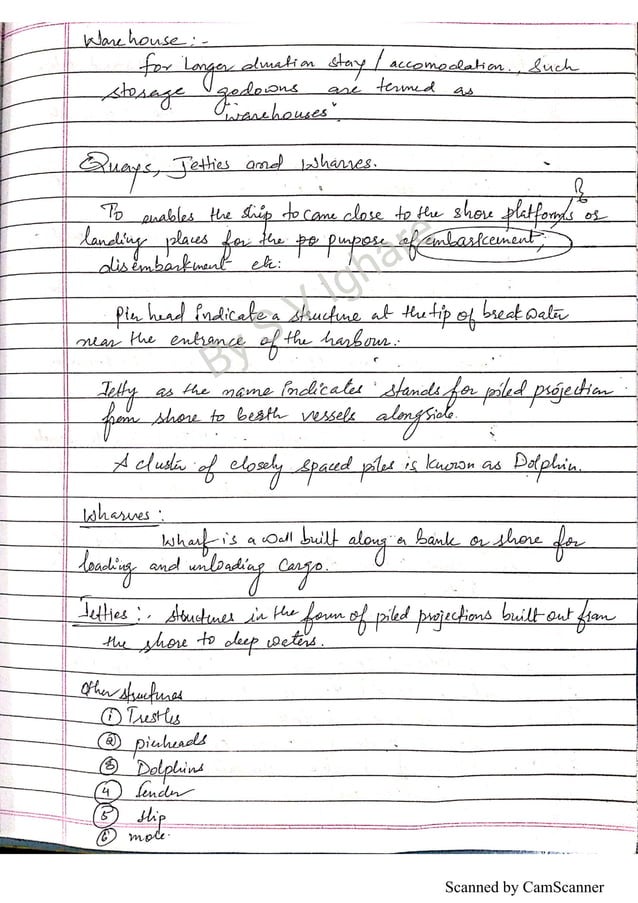 Warehouse :-
for longer duration stay / accomodation., Such
storage godowns are termed as
"warehouses".
Quays, Jetties and Wharves.
To enables the ship to come close to the shore platforms or
landing places for the po purpose of embarkcement,
disembarkment etc.
Pin head Indicate a structure at the tip of break water
near the entrance of the harbour.
Jetty as the name Indicates stands for piled projection
from shore to berth vessels alongside.
A cluster of closely spaced piles is known as Dolphin.
Wharves :
Wharf is a wall built along a bank or shore for
loading and unloading cargo.
Jetties :- structures in the form of piled projections built out from
the shore to deep waters.
Other structures
① Trestles
② pierheads
③ Dolphins
④ fender
⑤ slip
⑥ mole.
By S V Ighare
Scanned by CamScanner